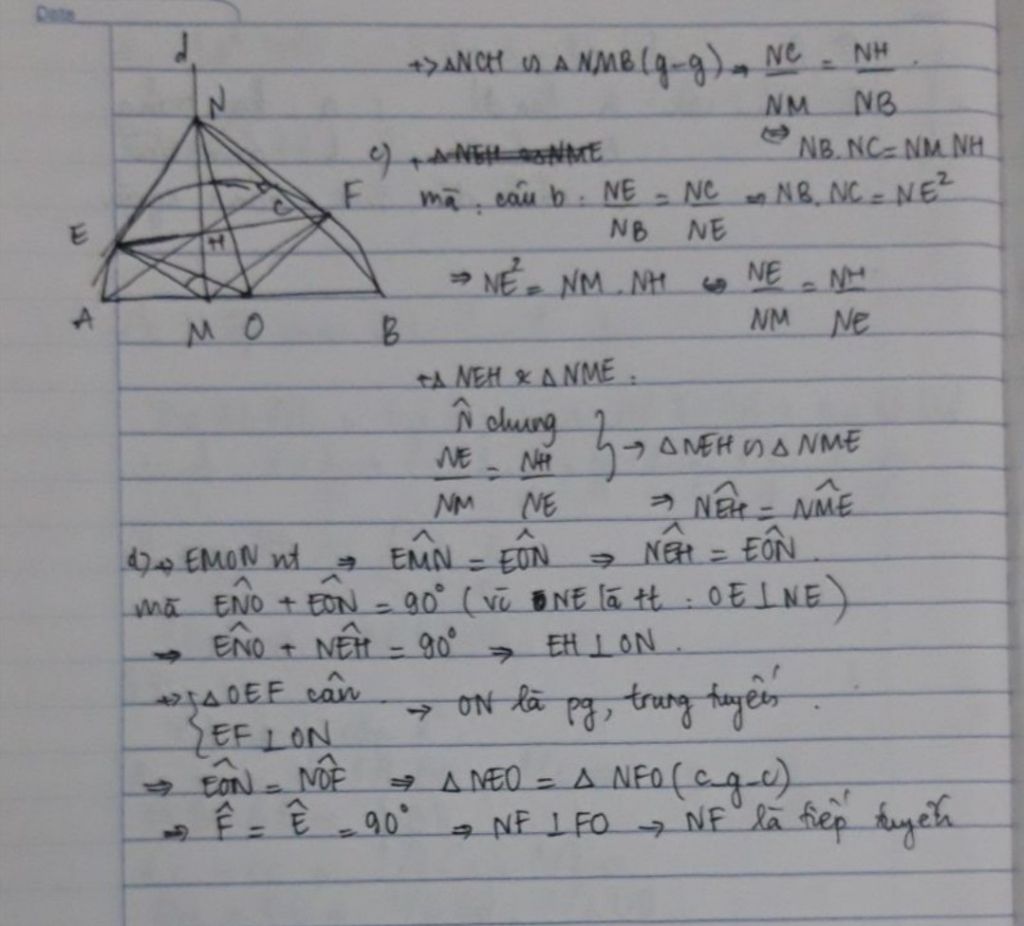 Date
d
N
E
H
C
F
A
M
O
B
+> ΔNCH ∽ ΔNMB (g-g) → NC/NM = NH/NB.
⇔ NB.NC = NM.NH
c) + ΔNEH ∽ ΔNME
mà: câu b: NE/NB = NC/NE → NB.NC = NE²
⇒ NE² = NM.NH ⇔ NE/NM = NH/NE
+ Δ NEH & Δ NME:
N̂ chung
NE/NM = NH/NE } → ΔNEH ∽ ΔNME
⇒ NÊH = NM̂E
d) → EMON nt ⇒ EM̂N = EÔN ⇒ NÊH = EÔN.
mà EN̂O + EÔN = 90° (vì NE là tt: OE⊥NE)
⇒ EN̂O + NÊH = 90° ⇒ EH⊥ON.
+> { ΔOEF cân → ON là pg, trung tuyến.
{ EF⊥ON
⇒ EÔN = NÔF ⇒ ΔNEO = ΔNFO (c-g-c)
⇒ F̂ = Ê = 90° ⇒ NF⊥FO → NF là tiếp tuyến